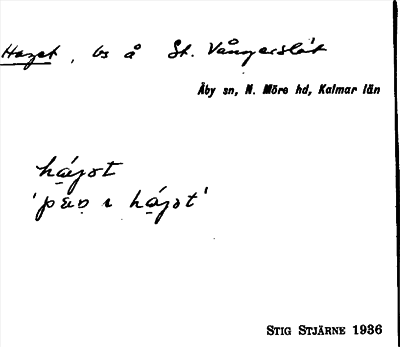 Hazet, ls å St. Vångerslät
Åby sn, N. Möre hd, Kalmar län
hájot
'pɛn ı hájot'
STIG STJÄRNE 1936